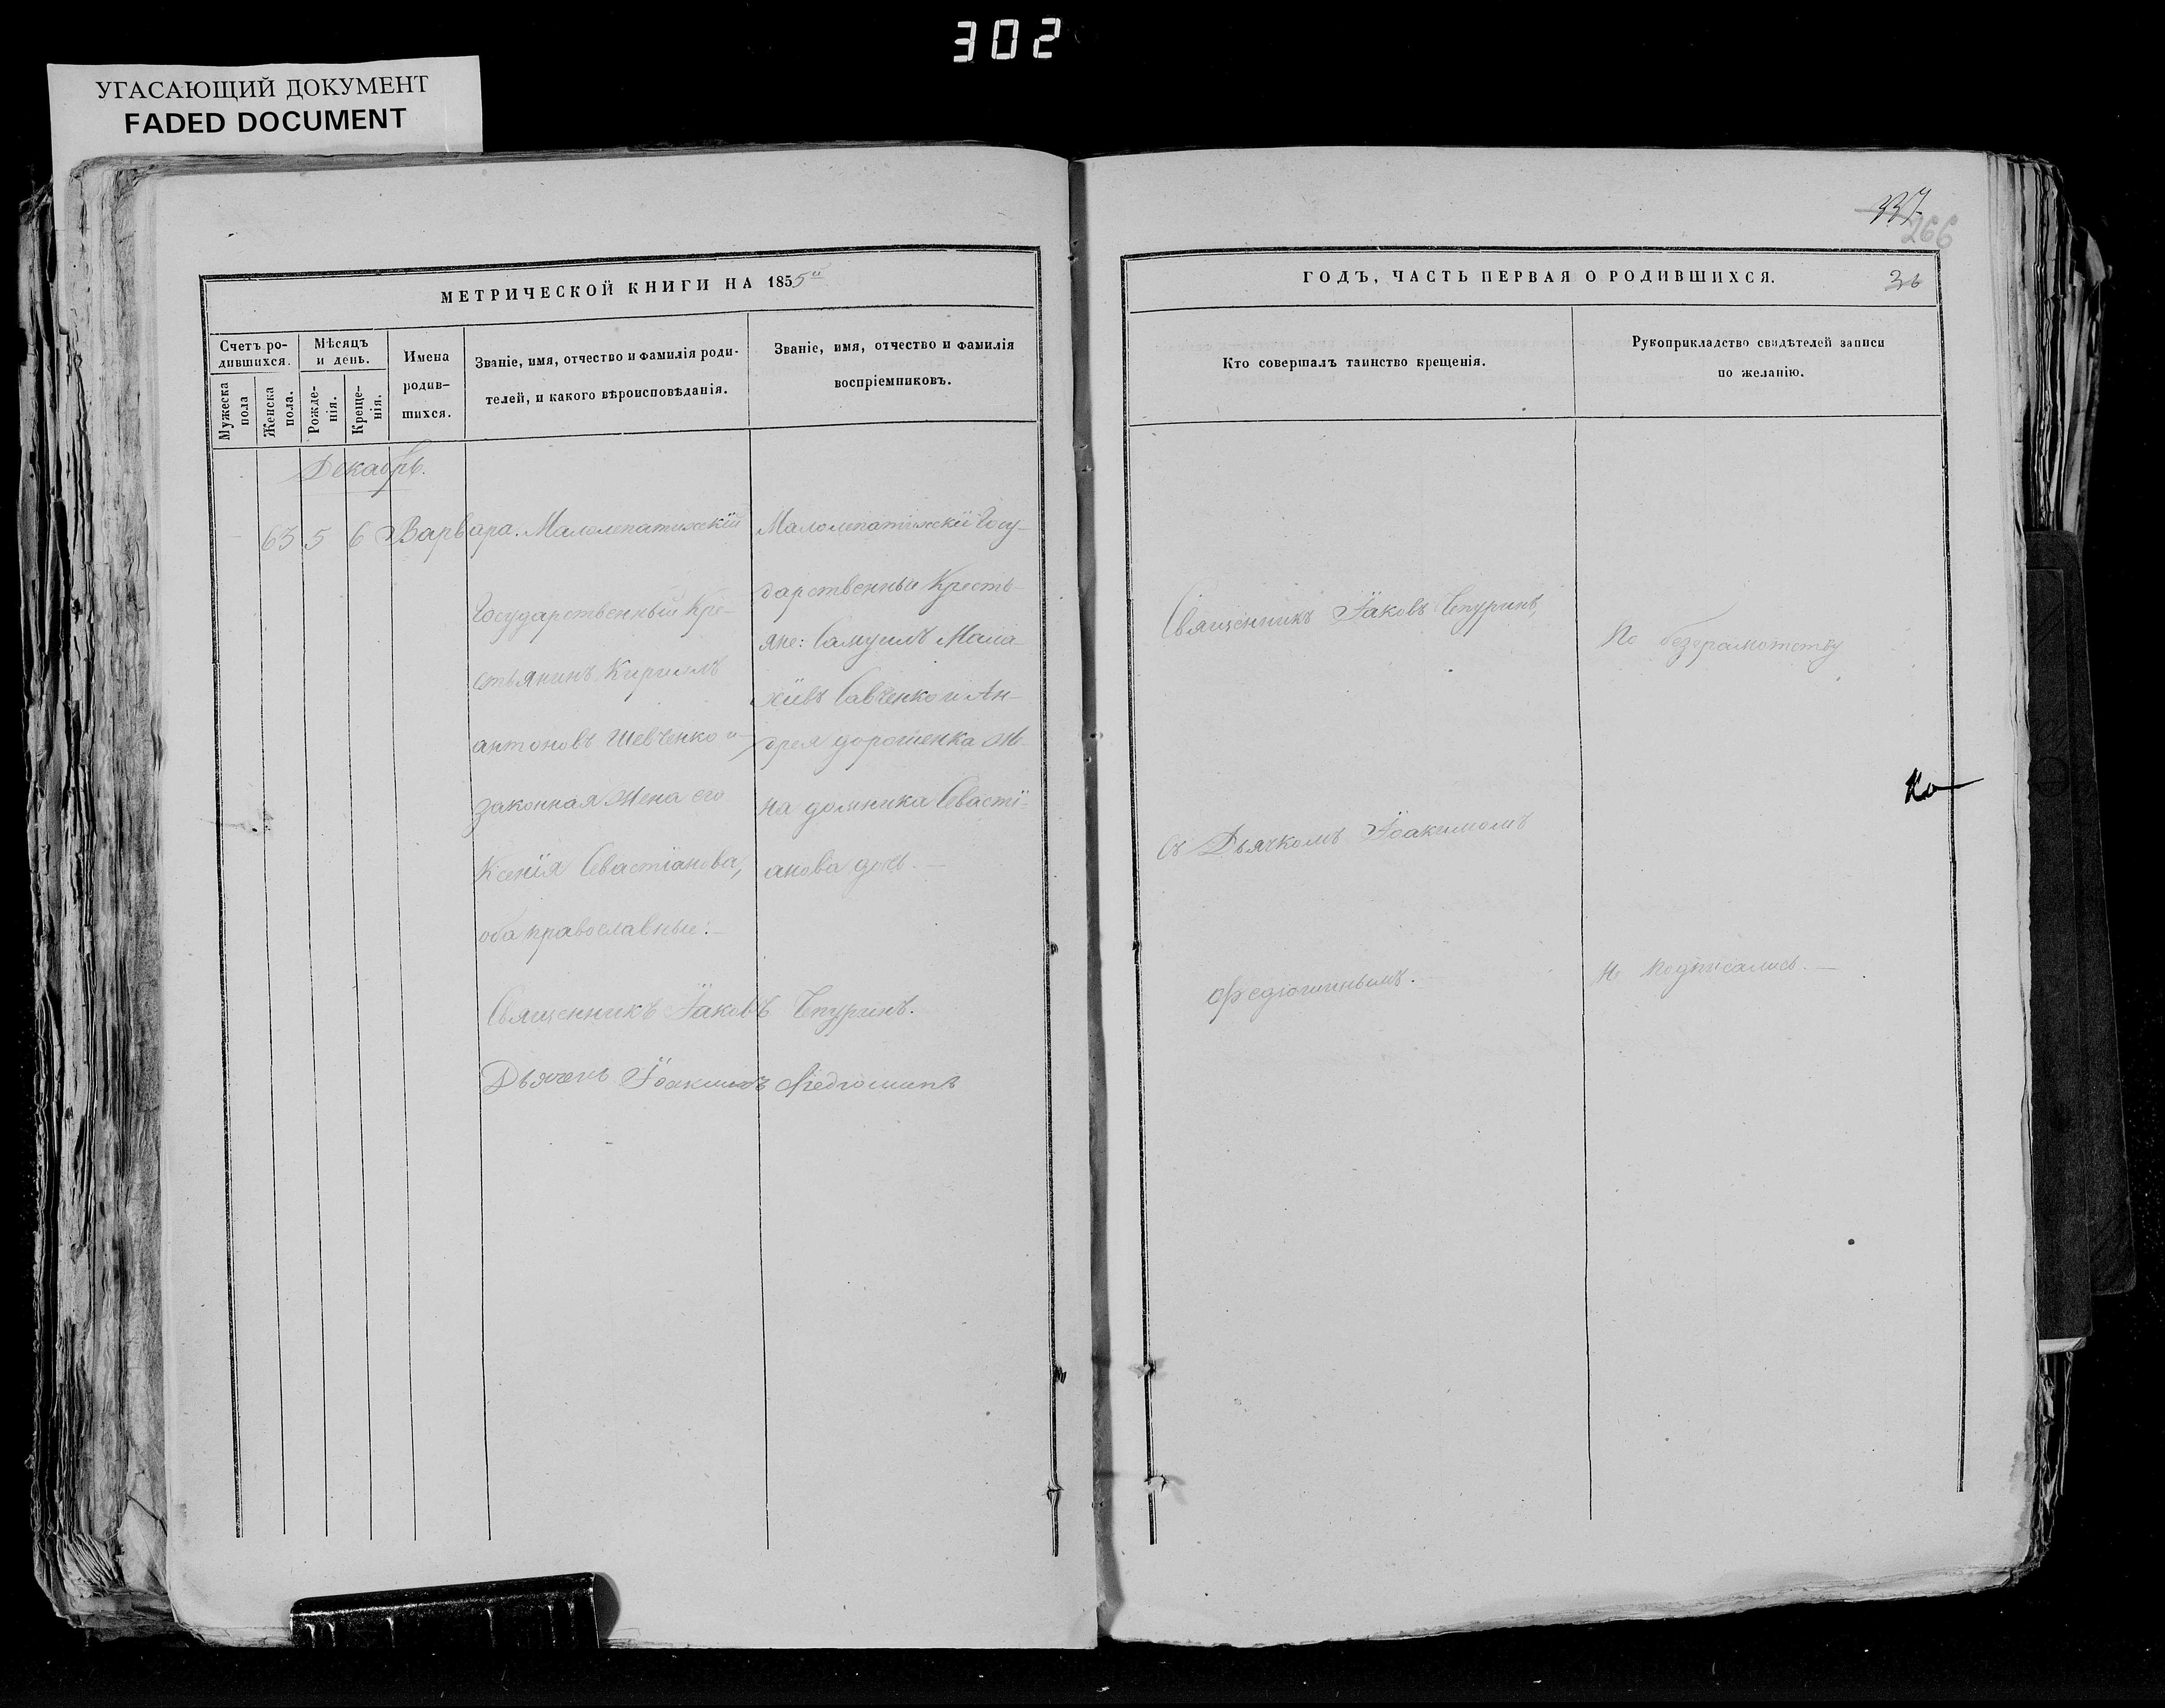 302
УГАСАЮЩИЙ ДОКУМЕНТ
FADED DOCUMENT
266
МЕТРИЧЕСКОЙ КНИГИ НА 1855й
Счетъ ро-
дившихся.
Мужеска
пола
Женска
пола.
Мѣсяцъ
и день.
Рожде-
нія.
Креще-
нія.
Имена
родив-
шихся.
Званіе, имя, отчество и фамилія роди-
телей, и какого вѣроисповѣданія.
Званіе, имя, отчество и фамилія
воспріемниковъ.
Декабрь.
63 5 6 Варвара. Малолепатижскій
Государственный Кре-
стьянинъ Кириллъ
антоновъ Шевченко и
законная жена его
Ксенія Севастіанова,
оба православные.
Малолепатижскіе Госу-
дарственные Кресть-
яне: Самуилъ Мала-
хіивъ Савченко и Ан-
дрея дорошенка же-
на домника Севасті-
анова дочь.
Священникъ Іаковъ Чепуринъ.
Дьячекъ Іоакимъ Федюшинъ
ГОДЪ, ЧАСТЬ ПЕРВАЯ О РОДИВШИХСЯ.
Кто совершалъ таинство крещенія.
Рукоприкладство свидѣтелей записи
по желанію.
Священникъ Іаковъ Чепуринъ,
съ Дьячкомъ Іоакимомъ
Федюшинымъ.
По безграмотству
не подписались.